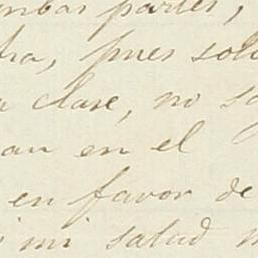 ambas partes,
pues sol
a clase, no s
an en el
en favor de
mi salud